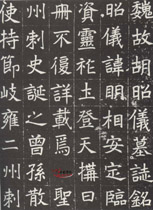 魏故胡昭儀墓誌銘
昭儀諱明相安定臨
資靈祉土登天構曰
冊不復詳載焉聖
州刺史誕之曾孫散
使持節岐雍二州刺